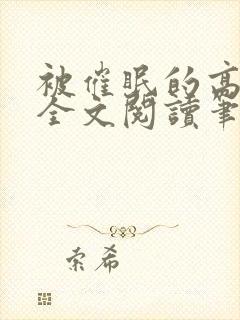 被催眠的高
全文閱讀筆
索希